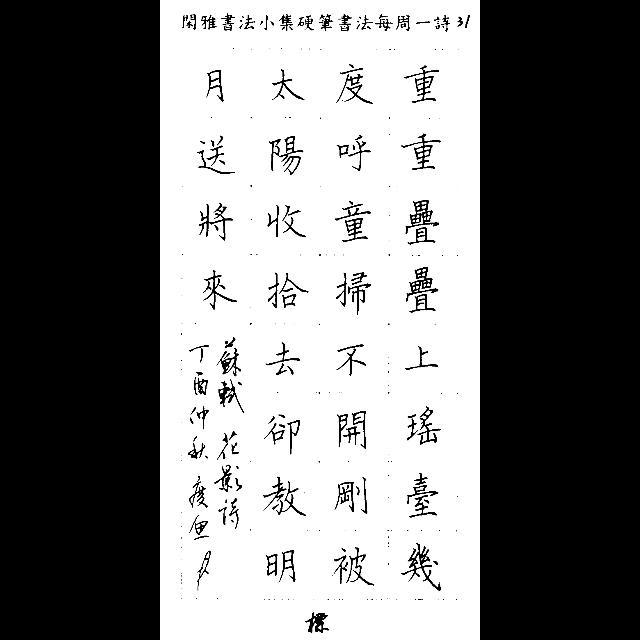 閑雅書法小集硬筆書法每周一詩31
重重疊疊上瑤臺幾
度呼童掃不開剛被
太陽收拾去卻教明
月送將來
蘇軾 花影詩
丁酉仲秋